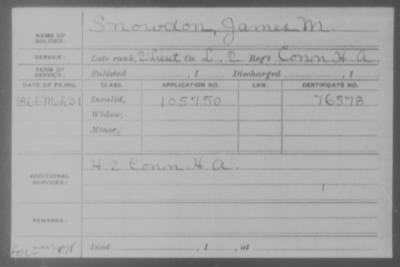 NAME OF SOLDIER: Snowdon, James M.
SERVICE: Late rank, 2 Lieut Co. L, 2 Reg't Conn H. A.
TERM OF SERVICE: Enlisted , 1 Discharged , 1
DATE OF FILING. CLASS. APPLICATION NO. LAW. CERTIFICATE NO.
1866 Mch 31 Invalid, 105750 76578
Widow,
Minor,
ADDITIONAL SERVICES: H 2 Conn H. A.
REMARKS:
Died , 1 , at